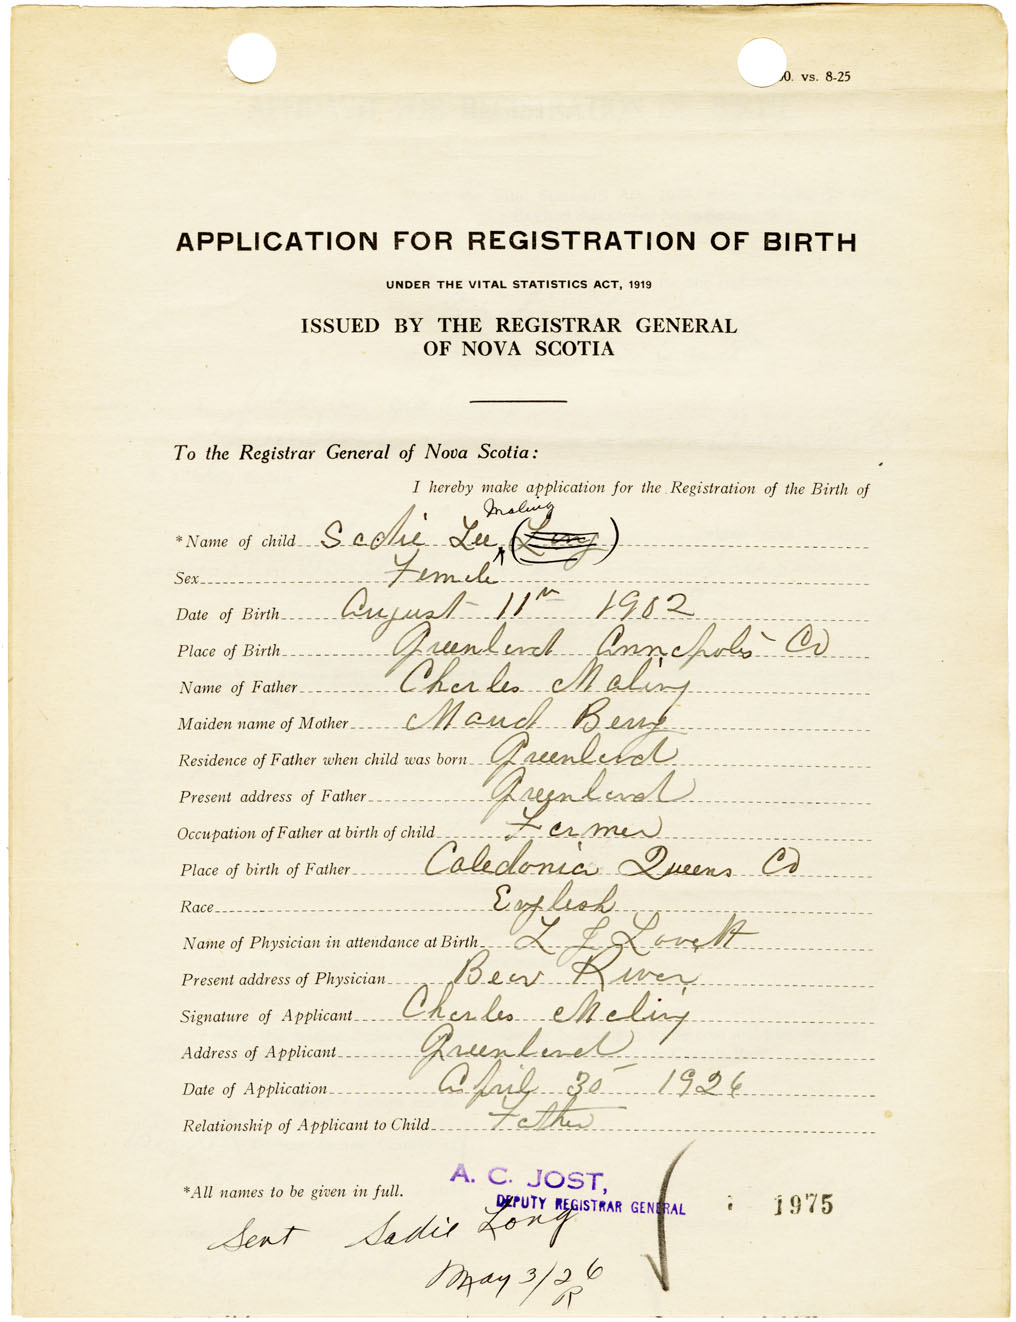 0. vs. 8-25
APPLICATION FOR REGISTRATION OF BIRTH
UNDER THE VITAL STATISTICS ACT, 1919
ISSUED BY THE REGISTRAR GENERAL
OF NOVA SCOTIA
To the Registrar General of Nova Scotia:
I hereby make application for the Registration of the Birth of
Maling
*Name of child Sadie Lee (Long)
Sex Female
Date of Birth August 11th 1902
Place of Birth Greenland Annapolis Co
Name of Father Charles Maling
Maiden name of Mother Maud Berry
Residence of Father when child was born Greenland
Present address of Father Greenland
Occupation of Father at birth of child Farmer
Place of birth of Father Caledonia Queens Co
Race English
Name of Physician in attendance at Birth L J Lovett
Present address of Physician Bear River
Signature of Applicant Charles Maling
Address of Applicant Greenland
Date of Application April 30 1926
Relationship of Applicant to Child Father
*All names to be given in full.
A. C. JOST,
DEPUTY REGISTRAR GENERAL
1975
Sent Sadie Long
May 3/26
R